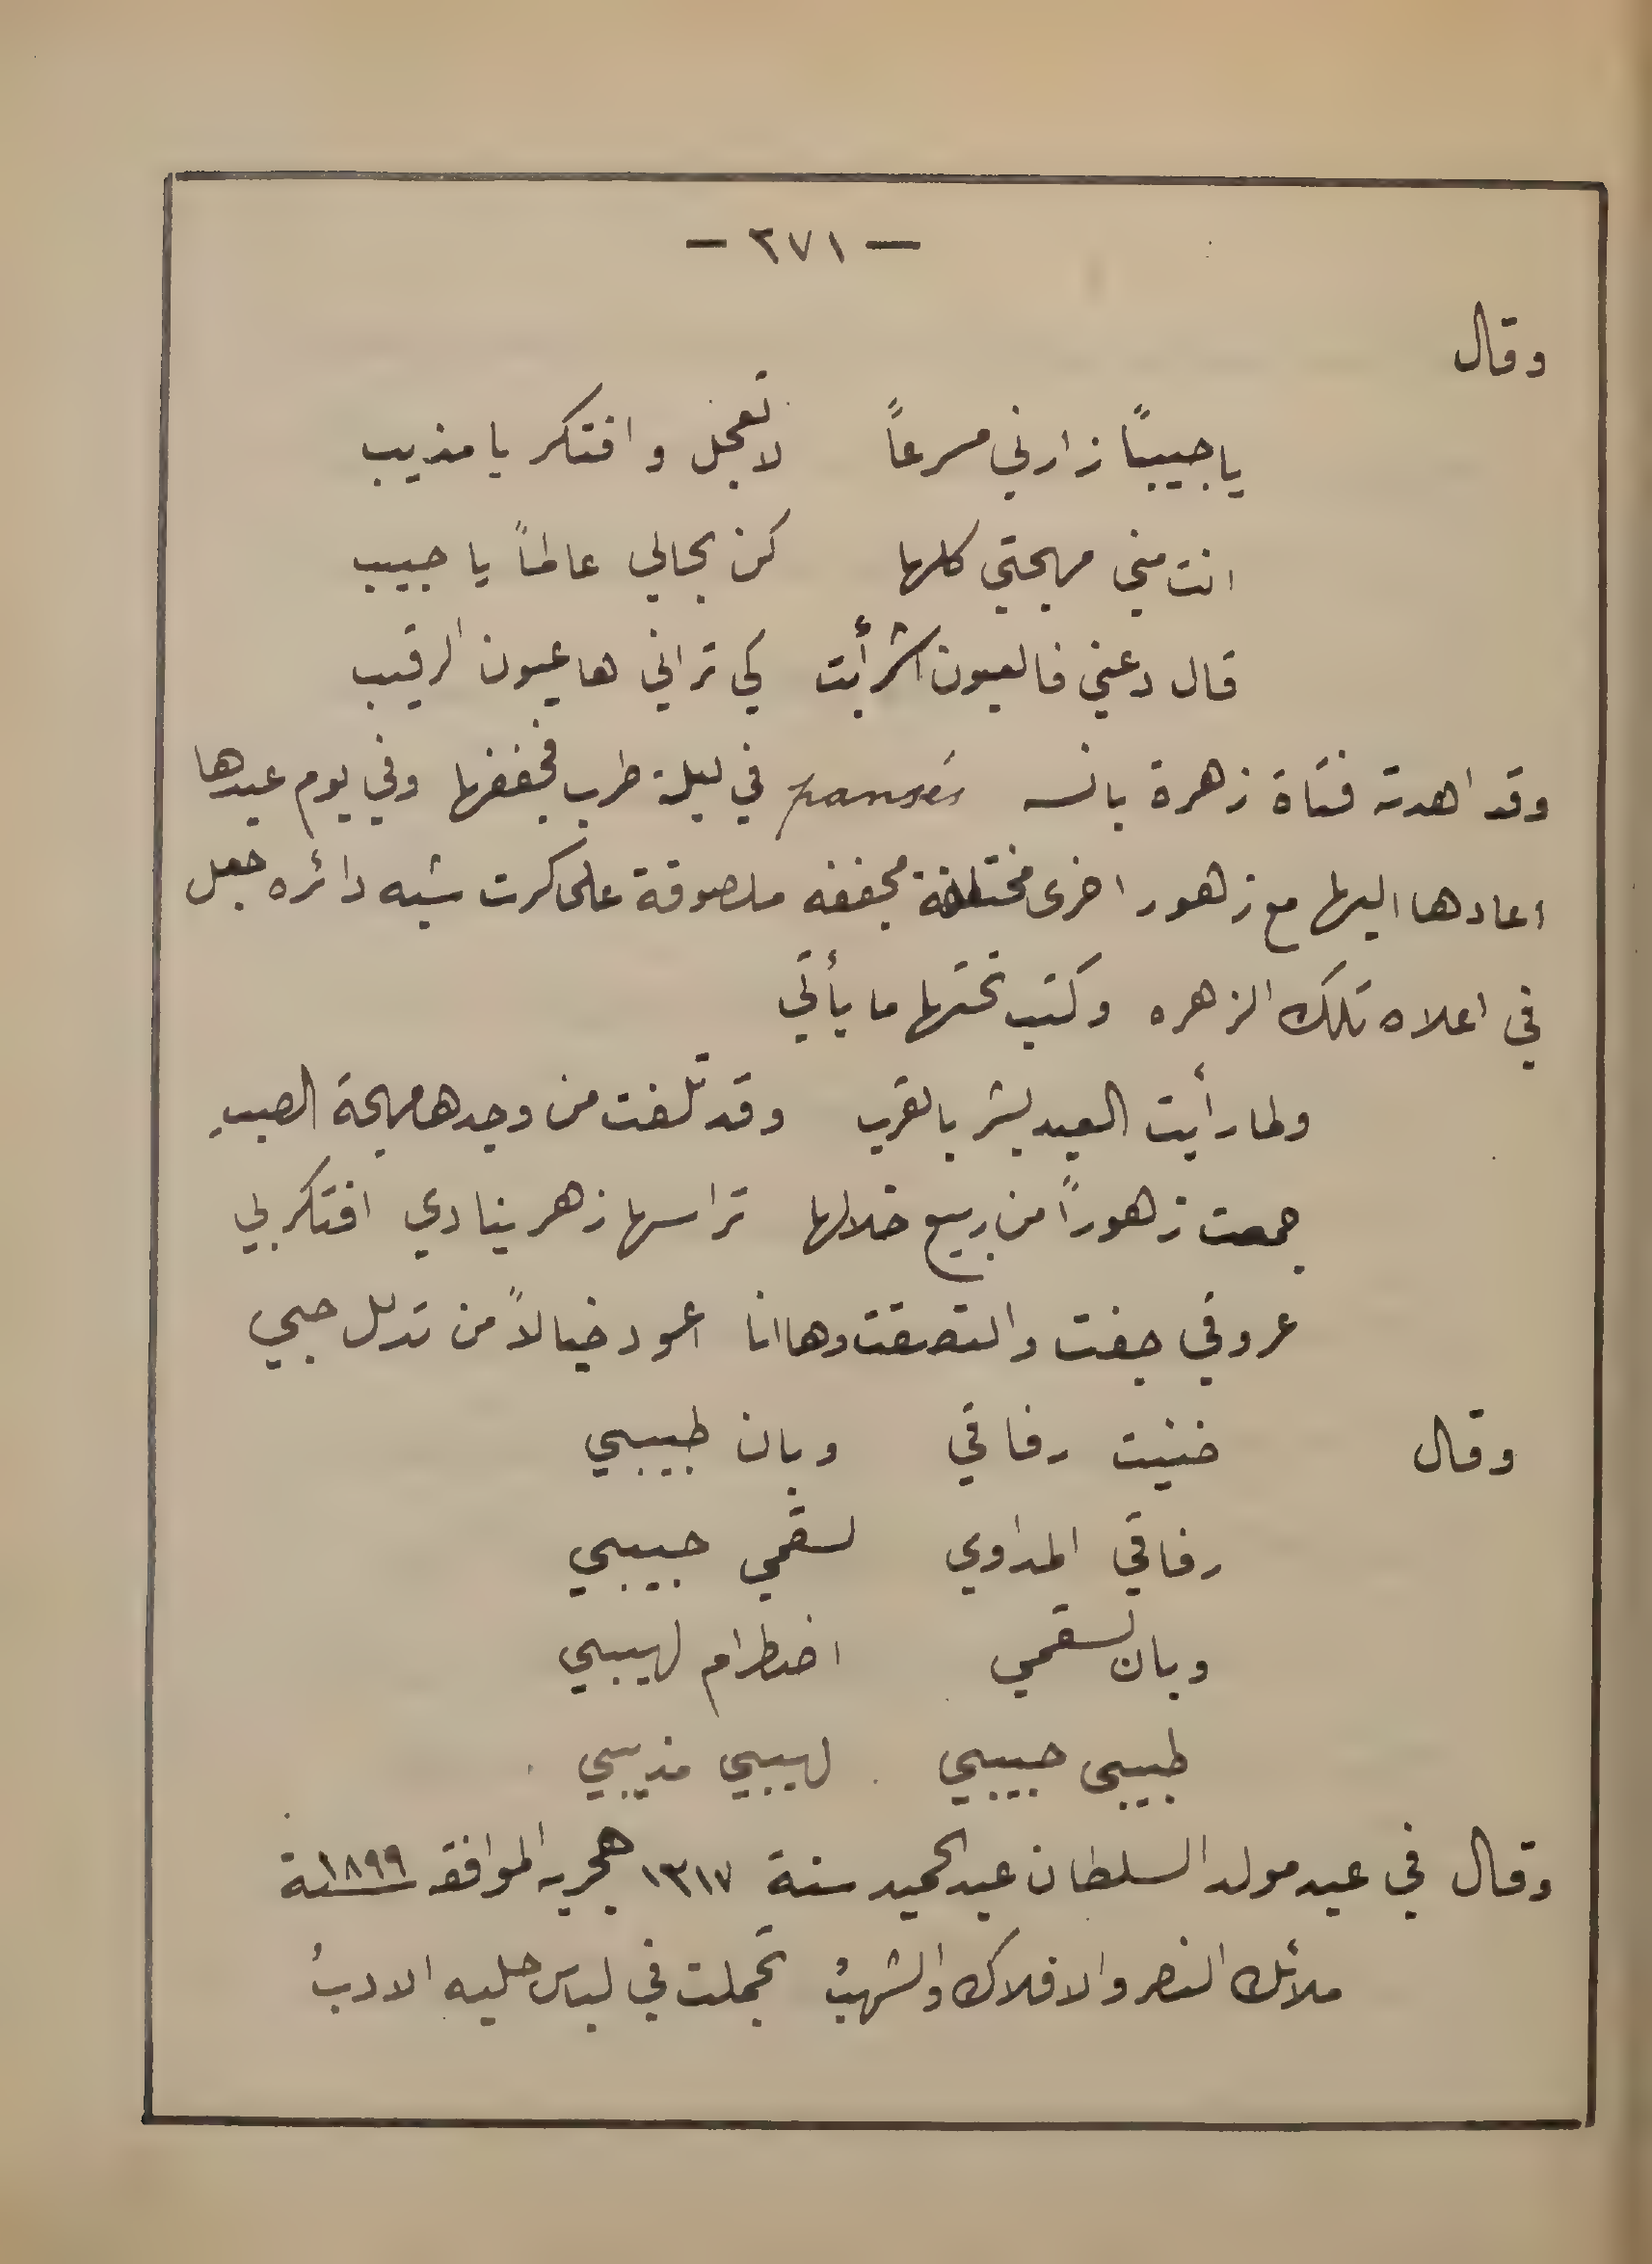 — ٢٧١ —
وقال
يا حبيباً زارني مسرعاً لا تعجل وافتكر يا مذيب
انت مني مهجتي كلها كن بحالي عالماً يا حبيب
قال دعني فالعيون اشرأبت كي تراني ها عيون الرقيب
وقد اهدته فتاة زهرة بانسه pansés في ليلة طرب فجففها وفي يوم عيدها
اعادها اليها مع زهور اخرى مختلفة مجففه ملصوقة على كرت شبه دائره جعل
في اعلاه تلك الزهره وكتب تحتها ما يأتي
ولما رأيت العيد بشر بالقرب وقد تلفت من وجدها مهجة الصبِ
جمعت زهوراً من ربيع خلالها تراسها زهر ينادي افتكر بي
عروقي جفت والتصقت وها انا اعود خيالاً من تدلل حبي
وقال ضنيت رفاقي وبان طبيبي
رفاقي المداوي لسقمي حبيبي
وبان لسقمي اضطرام لهيبي
طبيبي حبيبي لهيبي مذيبي
وقال في عيد مولد السلطان عبد الحميد سنة ١٣١٧ هجريه الموافقه سنة ١٨٩٩
ملائك النصر والافلاك والشهبُ تجملت في لباس حليه الادبُ